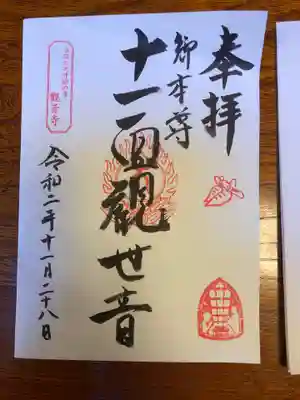 奉拝
御本尊
十一面觀世音
觀音寺
令和二年十一月二十八日